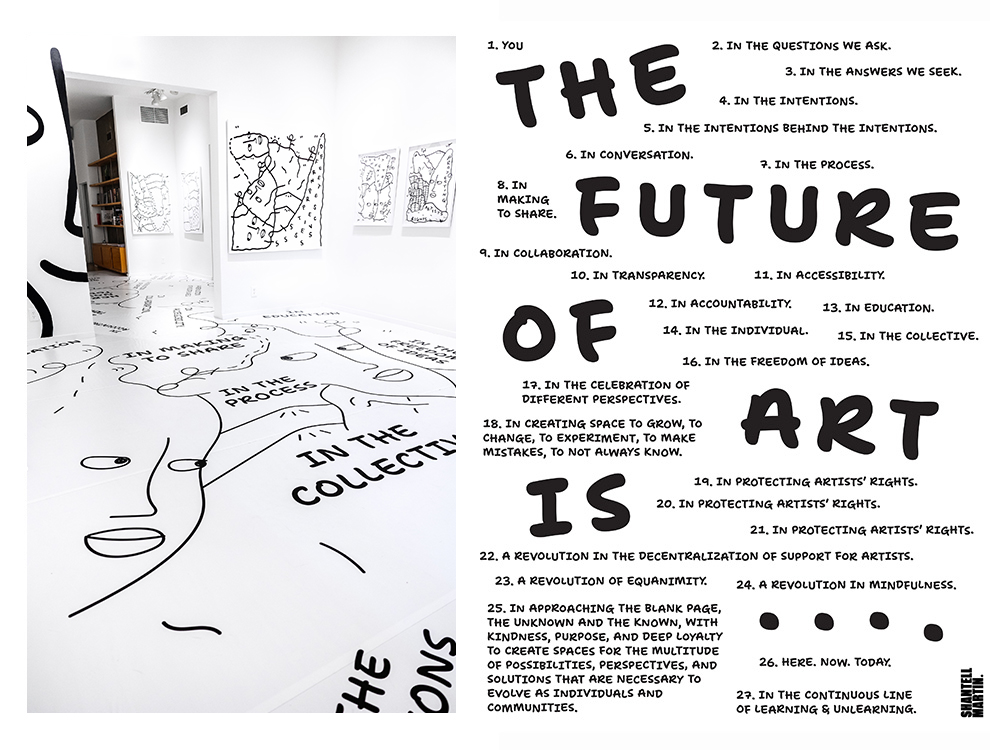 IN MAKING
TO SHARE
IN
EDUCATION
IN THE
FREEDOM
OF IDEAS
IN THE
PROCESS
IN THE
COLLECTIV
THE
IONS
1. YOU
2. IN THE QUESTIONS WE ASK.
3. IN THE ANSWERS WE SEEK.
THE
4. IN THE INTENTIONS.
5. IN THE INTENTIONS BEHIND THE INTENTIONS.
6. IN CONVERSATION.
7. IN THE PROCESS.
8. IN
MAKING
TO SHARE.
FUTURE
9. IN COLLABORATION.
10. IN TRANSPARENCY.
11. IN ACCESSIBILITY.
OF
12. IN ACCOUNTABILITY.
13. IN EDUCATION.
14. IN THE INDIVIDUAL.
15. IN THE COLLECTIVE.
16. IN THE FREEDOM OF IDEAS.
17. IN THE CELEBRATION OF
DIFFERENT PERSPECTIVES.
ART
18. IN CREATING SPACE TO GROW, TO
CHANGE, TO EXPERIMENT, TO MAKE
MISTAKES, TO NOT ALWAYS KNOW.
IS
19. IN PROTECTING ARTISTS' RIGHTS.
20. IN PROTECTING ARTISTS' RIGHTS.
21. IN PROTECTING ARTISTS' RIGHTS.
22. A REVOLUTION IN THE DECENTRALIZATION OF SUPPORT FOR ARTISTS.
23. A REVOLUTION OF EQUANIMITY.
24. A REVOLUTION IN MINDFULNESS.
25. IN APPROACHING THE BLANK PAGE,
THE UNKNOWN AND THE KNOWN, WITH
KINDNESS, PURPOSE, AND DEEP LOYALTY
TO CREATE SPACES FOR THE MULTITUDE
OF POSSIBILITIES, PERSPECTIVES, AND
SOLUTIONS THAT ARE NECESSARY TO
EVOLVE AS INDIVIDUALS AND
COMMUNITIES.
....
26. HERE. NOW. TODAY.
27. IN THE CONTINUOUS LINE
OF LEARNING & UNLEARNING.
SHANTELL
MARTIN.